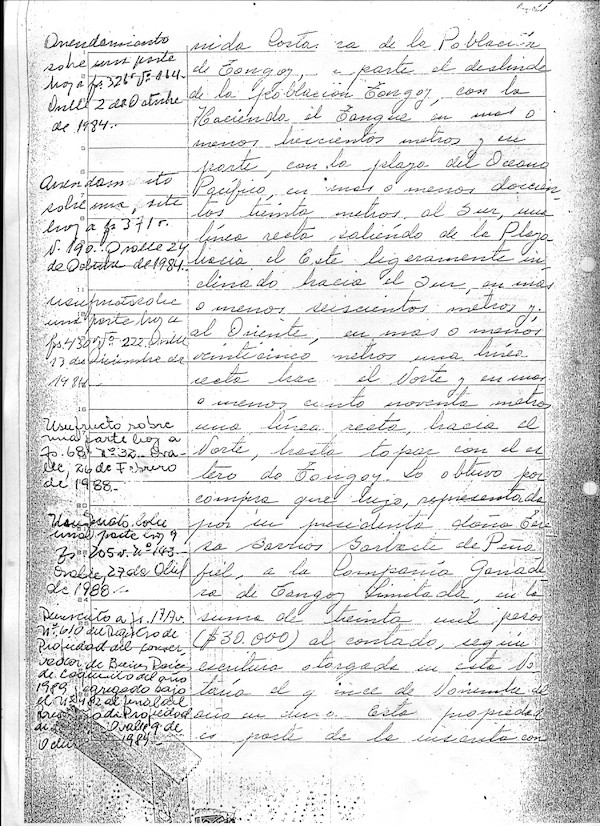 Arrendamiento
sobre una parte
hoy a fs 326
Ovalle 2 de Octubre
de 1984.-
Arrendamiento
sobre una parte
hoy a fs 371 v.
N. 190. Ovalle 24
de Octubre de 1984.-
Usufructo sobre
una parte hoy a
fs. 430 v. Nº 222. Ovalle
13 de Diciembre de
Usufructo sobre
una parte hoy a
fs. 68 Nº 32 Ova-
lle, 26 de Febrero
de 1988.-
Usufructo sobre
una parte hoy a
fs 205 v. nº 143.-
Ovalle, 27 de Abril
de 1988.-
Reinscrito a fs. 171 v.
Nº 610 del Registro de
Propiedad del Conser-
vador de Bienes Raíces
de Coquimbo del año
1989, agregado bajo
el Nº 482 al final del
Propiedad
Ovalle 9 de
1989.-
nida Costa ra de la Población
de Tongoy, parte el deslinde
de la población Tongoy, con la
Hacienda el Tangue en mas o
menos trescientos metros y en
parte, con la playa del Oceano
Pacífico, en mas o menos doscien-
tos treinta metros, al Sur, una
línea recta saliendo de la Playa
hacia el Este ligeramente in
clinado hacia el Sur, en mas
o menos seiscientos metros y,
al Oriente, en mas o menos
veinticinco metros una línea
recta hac el Norte y en mas
o menos ciento noventa metros
una línea recta, hacia el
Norte, hasta topar con el es
tero de Tongoy. Lo obtuvo por
compra que hizo, representada
por su presidenta doña Ere
sa Barrios de Peña
fiel, a la Compañía Ganade
ra de Tongoy Limitada, en la
suma de treinta mil pesos
($30.000) al contado, según
escritura otorgada en esta No
taría el q ince de Noviembre del
año en curso. Esta propiedad
es parte de la inscrita con